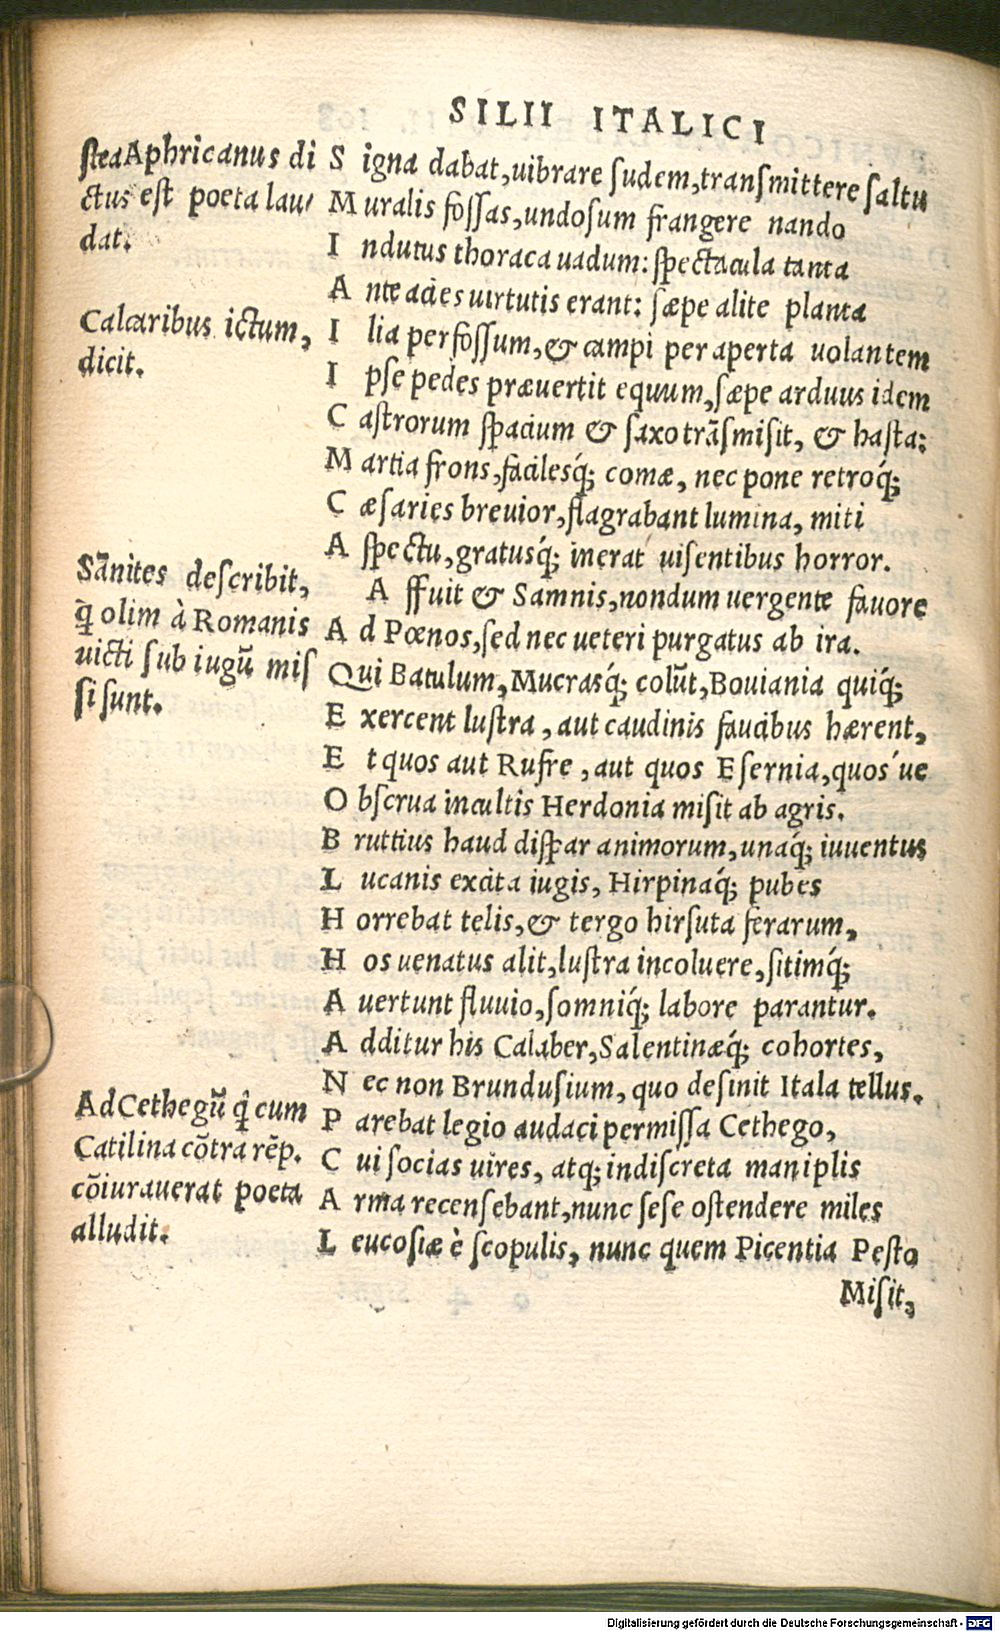 SILII ITALICI
steaAphricanus di
ctus est poeta lau
dat.
Calcaribus ictum,
dicit.
Sãnites describit,
q̃ olim à Romanis
uicti sub iugũ mis
si sunt.
Ad Cethegũ q̃ cum
Catilina cõtra rẽp.
cõiurauerat poeta
alludit.
Signa dabat, uibrare sudem, transmittere saltu
Muralis fossas, undosum frangere nando
Indutus thoraca uadum: spectacula tanta
Ante acies uirtutis erant: sæpe alite planta
Ilia perfossum, & campi per aperta uolantem
Ipse pedes præuertit equum, sæpe arduus idem
Castrorum spacium & saxo trãsmisit, & hasta:
Martia frons, facilesq́; comæ, nec pone retroq́;
Cæsaries breuior, flagrabant lumina, miti
Aspectu, gratusq́; inerat uisentibus horror.
Affuit & Samnis, nondum uergente fauore
Ad Pœnos, sed nec ueteri purgatus ab ira.
Qui Batulum, Mucrasq́; colũt, Bouiania quiq́;
Exercent lustra, aut caudinis faucibus hærent,
Et quos aut Rufre, aut quos Esernia, quos´ue
Obscrua incultis Herdonia misit ab agris.
Bruttius haud dispar animorum, unaq́; iuuentus
Lucanis excita iugis, Hirpinaq́; pubes
Horrebat telis, & tergo hirsuta ferarum,
Hos uenatus alit, lustra incoluere, sitimq́;
Auertunt fluuio, somniq́; labore parantur.
Additur his Calaber, Salentinæq́; cohortes,
Nec non Brundusium, quo desinit Itala tellus.
Parebat legio audaci permissa Cethego,
Cui socias uires, atq; indiscreta maniplis
Arma recensebant, nunc sese ostendere miles
Leucosiæ è scopulis, nunc quem Picentia Pesto
Misit,
Digitalisierung gefördert durch die Deutsche Forschungsgemeinschaft - DFG